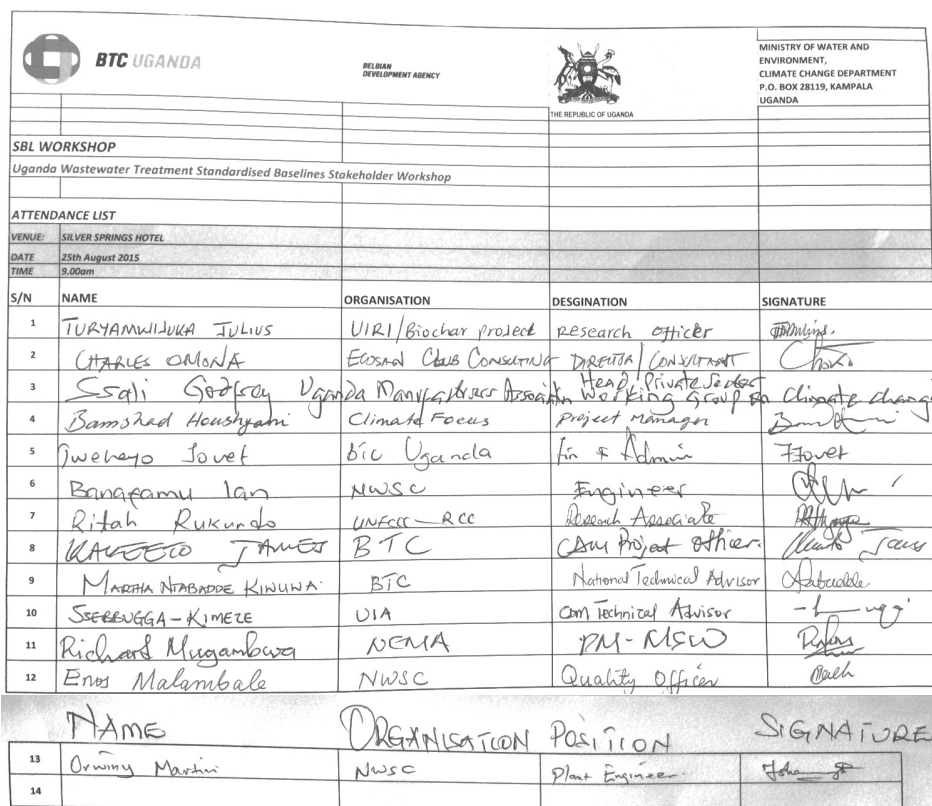 BTC UGANDA
BELGIAN
DEVELOPMENT AGENCY
THE REPUBLIC OF UGANDA
MINISTRY OF WATER AND
ENVIRONMENT,
CLIMATE CHANGE DEPARTMENT
P.O. BOX 28119, KAMPALA
UGANDA
SBL WORKSHOP
Uganda Wastewater Treatment Standardised Baselines Stakeholder Workshop
ATTENDANCE LIST
VENUE: SILVER SPRINGS HOTEL
DATE 25th August 2015
TIME 9.00am
S/N NAME ORGANISATION DESGINATION SIGNATURE
1 TURYAMWIJUKA JULIUS UIRI/Biochar project Research officer
2 CHARLES OMONA ECOSAN CLUB CONSULTING DIRECTOR/CONSULTANT
3 Ssali Godfrey Uganda Manufacturers Association Head/Private Sector Working Group on Climate change
4 Bamshad Houshyani Climate Focus project Manager
5 Tweheyo Jovet btc Uganda Fin & Admin Jovet
6 Ian NWSC Engineer
7 Ritah Rukundo UNFCCC-RCC Research Associate
8 JAMES BTC CDM Project officer.
9 MARTHA NTABADDE KINUNA BTC National Technical Advisor
10 SSEBBUGGA-KIMEZE UIA CDM Technical Advisor
11 Richard Mugambwa NEMA PM-MSW
12 Enos Malambale NWSC Quality Officer
NAME ORGANISATION POSITION SIGNATURE
13 Orwiny Martin NWSC Plant Engineer.
14